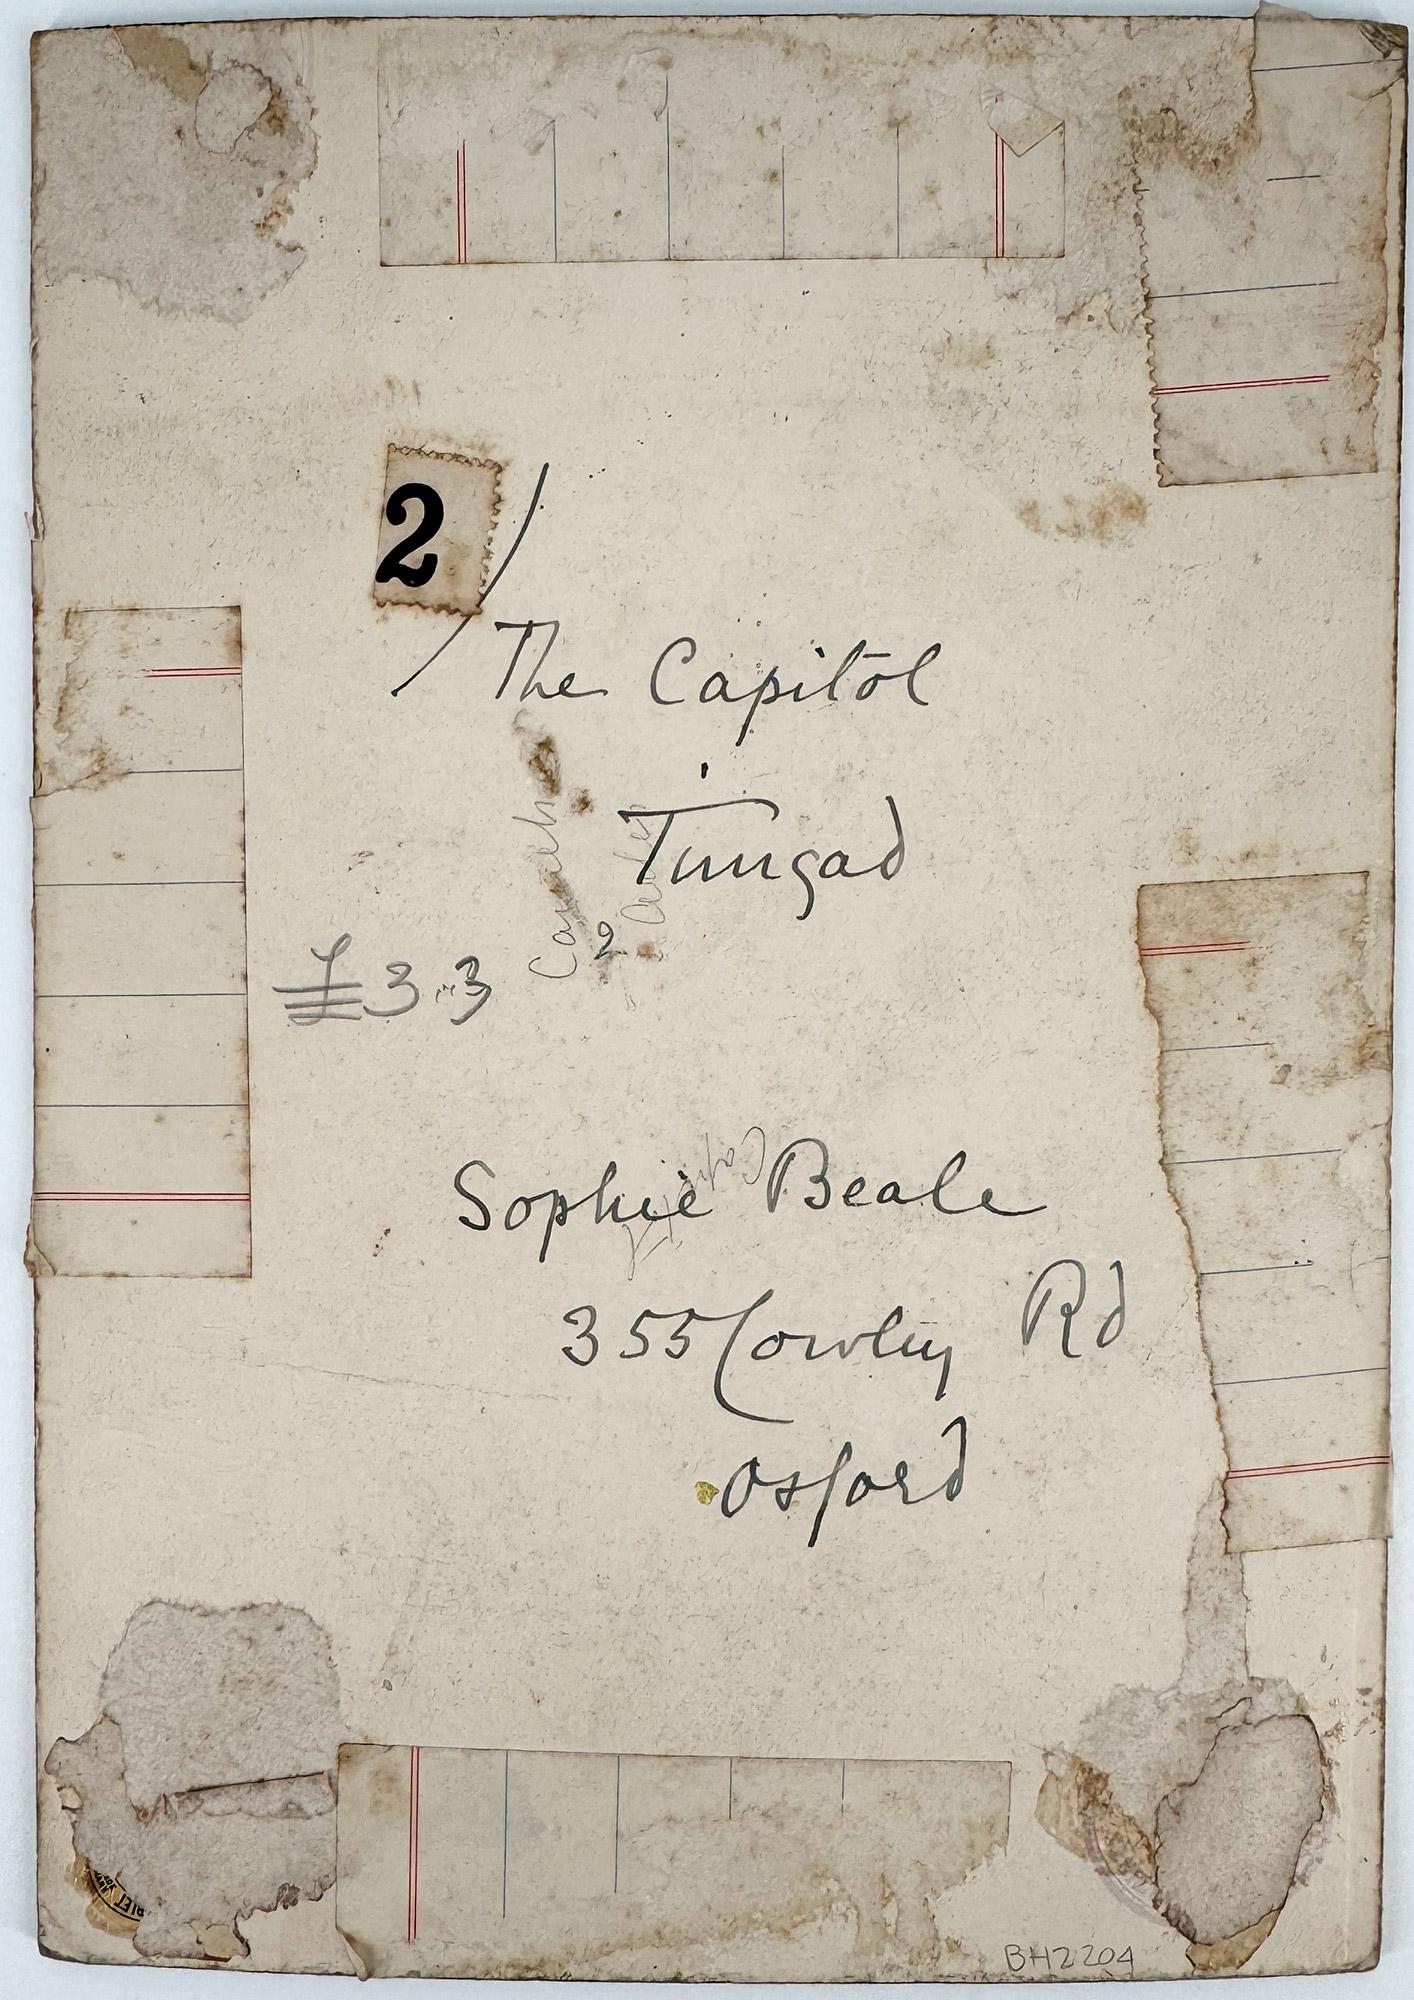 2
The Capitol
Timgad
2
£3.3
Sophie Beale
355 Cowley Rd
Oxford
BH2204